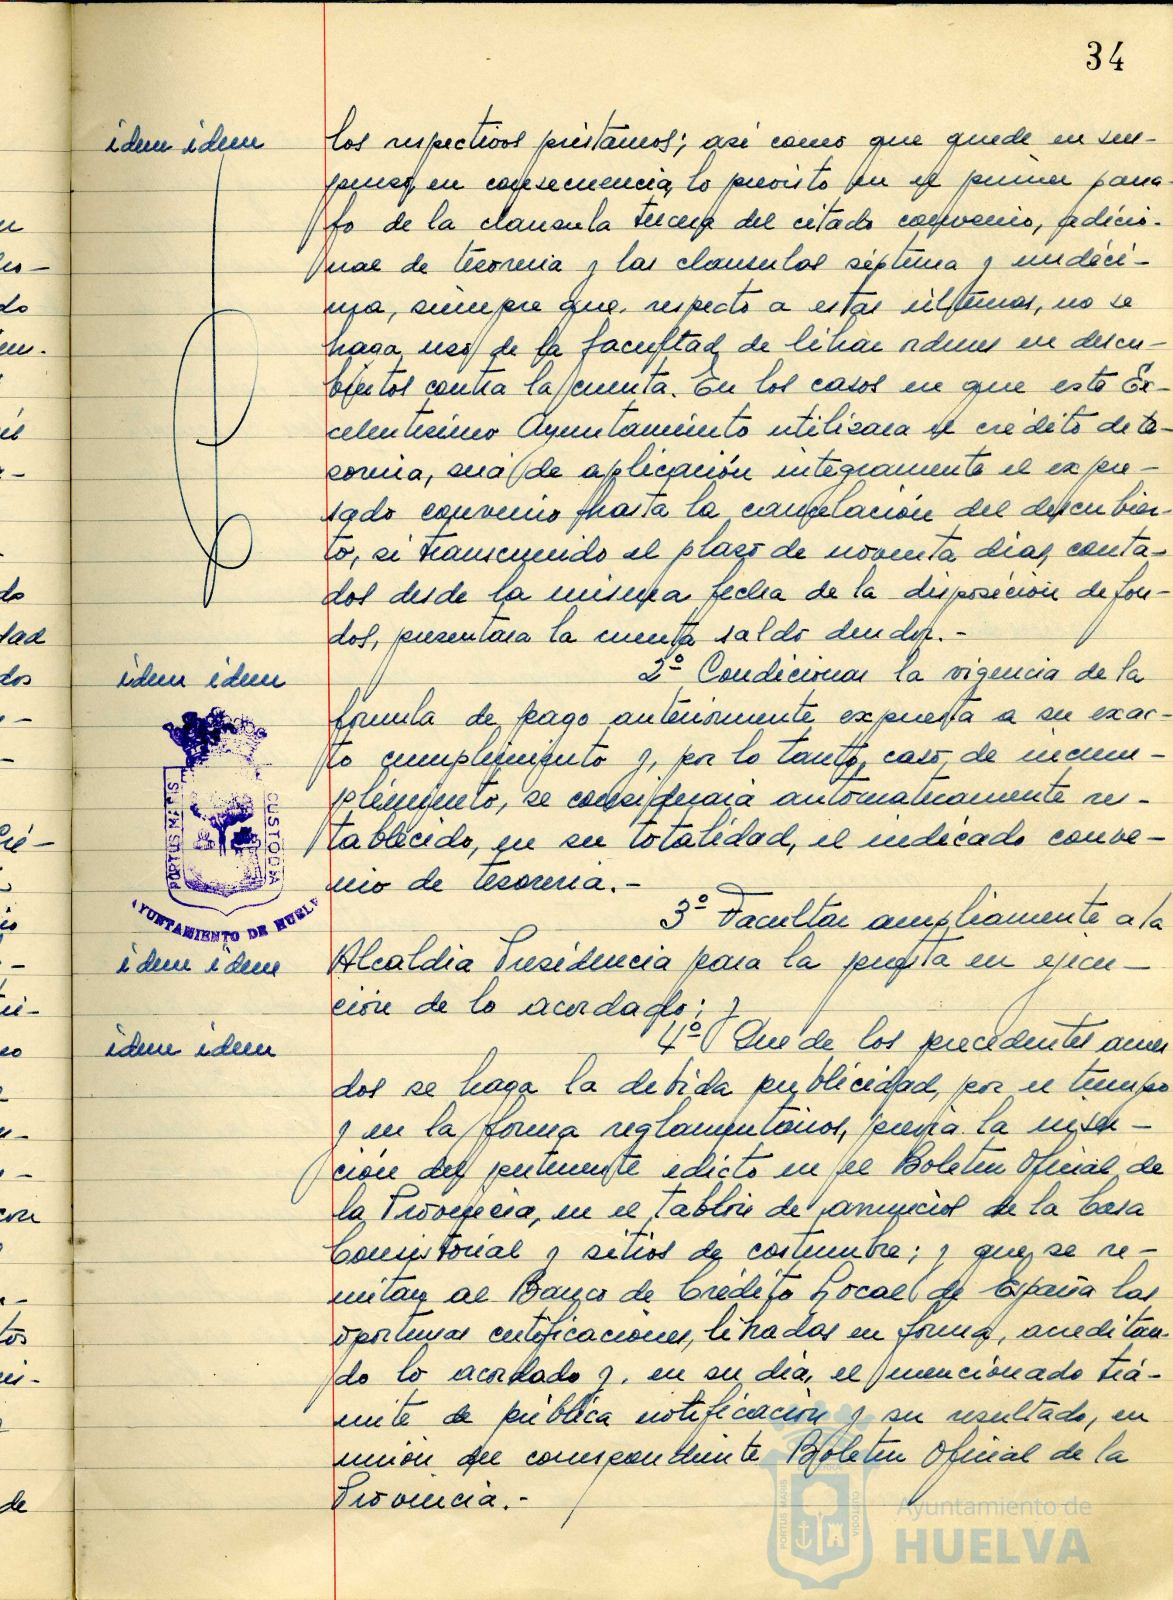 34
idem idem
los respectivos préstamos; así como que quede en sus-
penso, en consecuencia, lo previsto en el primer parra-
fo de la clausula tercera del citado convenio, adicio-
nal de tesoreria y las clausulas séptima y undéci-
ma, siempre que, respecto a estas últimas, no se
haga uso de la facultad de librar ordenes en descu-
biertos contra la cuenta. En los casos en que este Ex-
celentisimo Ayuntamiento utilizara el crédito de te-
soreria, será de aplicación integramente el expre-
sado convenio hasta la cancelación del descubier-
to, si transcurrido el plazo de noventa dias, conta-
dos desde la misma fecha de la disposición de fon-
dos, presentara la cuenta saldo deudor.-
idem idem
2º Condicionar la vigencia de la
fórmula de pago anteriormente expuesta a su exac-
to cumplimiento y, por lo tanto, caso de incum-
plimiento, se considerará automaticamente res-
tablecido, en su totalidad, el indicado conve-
nio de tesoreria.-
PORTUS MARIS
CUSTODIA
AYUNTAMIENTO DE HUELVA
3º Facultar ampliamente a la
idem idem
Alcaldia Presidencia para la puesta en ejecu-
ción de lo acordado; y
idem idem
4º Que de los precedentes acuer
dos se haga la debida publicidad, por el tiempo
y en la forma reglamentarios, previa la inser-
ción del pertinente edicto en el Boletin Oficial de
la Provincia, en el tablón de anuncios de la Casa
Consistorial y sitios de costumbre; y que se re-
mitan al Banco de Crédito Local de España las
oportunas certificaciones, libradas en forma, acreditan-
do lo acordado y, en su dia, el mencionado trá-
mite de pública notificación y su resultado, en
unión del correspondiente Boletin Oficial de la
Provincia.-
PORTUS MARIS
CUSTODIA
Ayuntamiento de
HUELVA